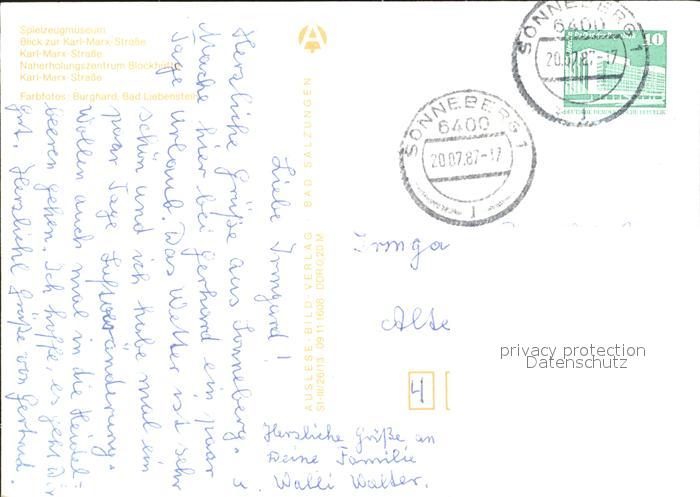 Spielzeugmuseum
Blick zur Karl-Marx-Straße
Karl-Marx-Straße
Naherholungszentrum Blockhütte
Karl-Marx-Straße
Farbfotos: Burghard, Bad Liebenstein
AUSLESE-BILD-VERLAG · BAD SALZUNGEN
St-III/26/13 09 11 1608 DDR 0,20 M
Liebe Irmgard!
Herzliche Grüße aus Sonneberg.
Mache hier bei Gerhard ein paar
Tage Urlaub. Das Wetter ist sehr
schön und ich habe mal ein
paar Tage Luftveränderung.
Wollen auch mal in die Heidel-
beeren gehen. Ich hoffe, es geht Dir
gut. Herzliche Grüße von Gertrud.
SONNEBERG 1
6400
20.07.87-17
1
SONNEBERG 1
6400
20.07.87-17
1
10
DEUTSCHE DEMOKRATISCHE REPUBLIK
Irmga
Alte
privacy protection
Datenschutz
4
Herzliche Grüße an
Deine Familie
u. Walli Walter.